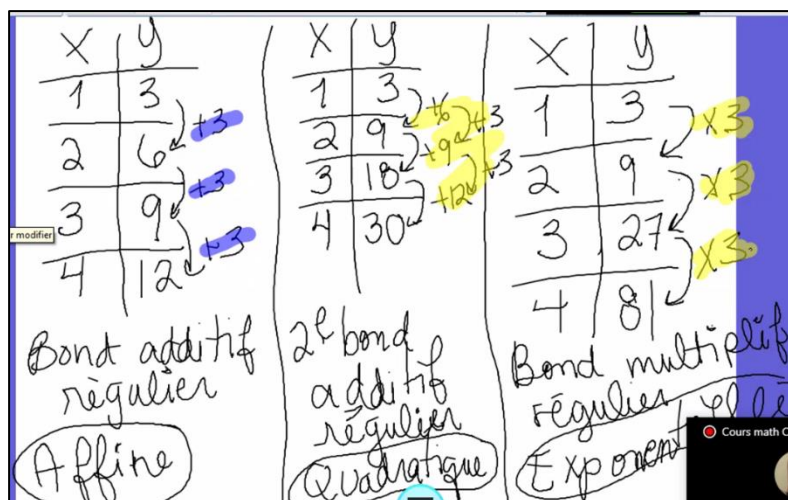 x y
1 3
2 6
3 9
4 12
+3
+3
+3
Bond additif
régulier
Affine
x y
1 3
2 9
3 18
4 30
+6
+9
+12
+3
+3
2e bond
additif
régulier
Quadratique
x y
1 3
2 9
3 27
4 81
x3
x3
x3
Bond multiplif
régulier
r modifier
Cours math C